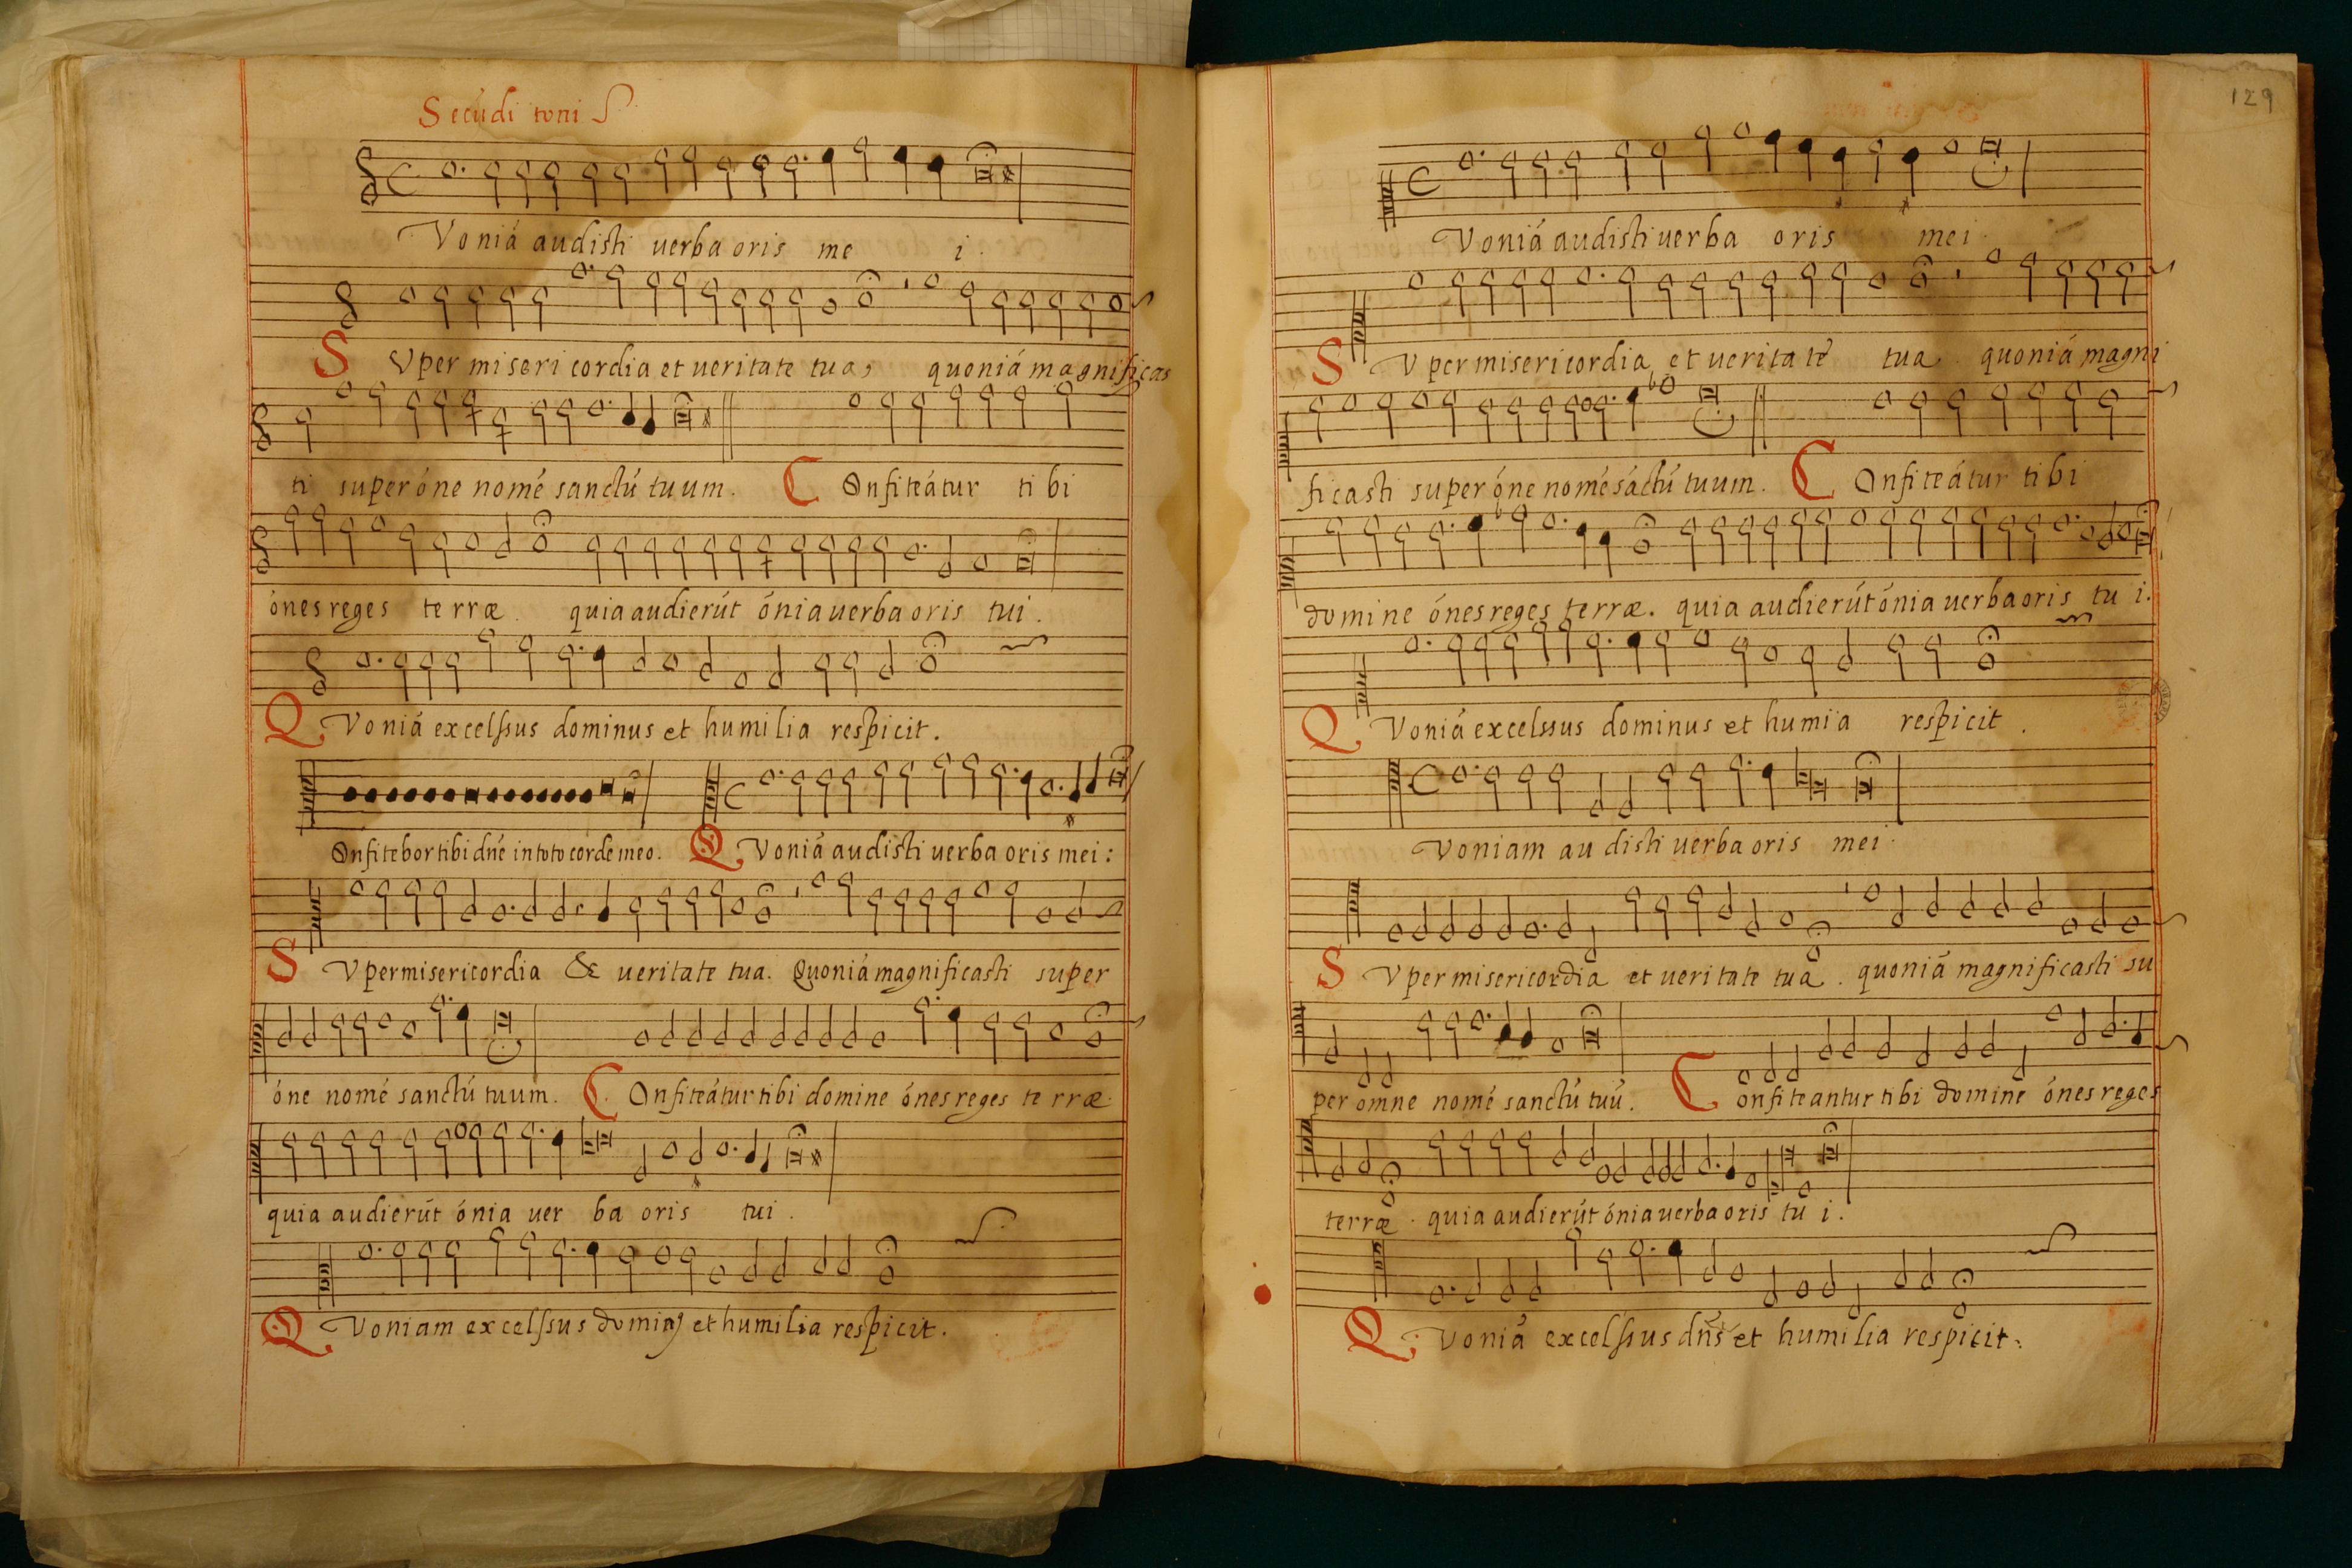 Secúdi toni
Voniá audisti uerba oris me i.
S Vper misericordia et ueritate tua, quoniá magnificas
ti super óne nomé sanctú tuum. C Onfiteátur tibi
ónes reges terræ. quia audierút ónia uerba oris tui.
Q Voniá excelssus dominus et humilia respicit.
Onfitebor tibi dñe in toto corde meo. Q Voniá audisti uerba oris mei:
S Vper misericordia & ueritate tua. Quoniá magnificasti super
óne nomé sanctú tuum. C Onfiteátur tibi domine ónes reges terræ.
quia audierút ónia uerba oris tui.
Q Voniam excelssus et humilia respicit.
129
Voniá audisti uerba oris mei.
S Vper misericordia et ueritaté tua. quoniá magni
ficasti super óne nomé sáctú tuum. C Onfiteátur tibi
domine ónes reges terræ. quia audierút ónia uerba oris tui.
Q Voniá excelssus dominus et humia respicit.
Voniam audisti uerba oris mei.
S Vper misericordia et ueritate tua. quoniá magnificasti su
per omne nomé sanctú tuú. C onfiteantur tibi domine ónes reges
terræ. quia audierút ónia uerba oris tui.
Q Voniá excelssus dñs et humilia respicit.